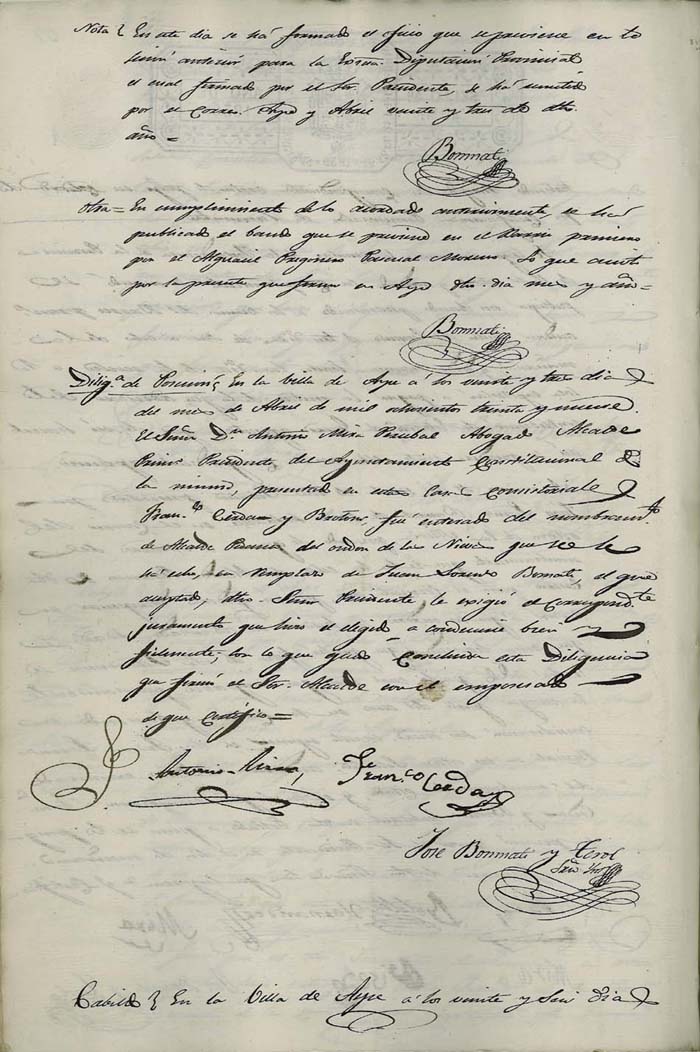 Nota { En este dia se há formado el oficio que se previene en la
sesión anterior para la Exma. Diputacion Provincial
el cual firmado por el Sor. Presidente, se há remitido
por el Correo. Aspe y Abril veinte y tres de dho.
año =
Bonmati
Otra = En cumplimiento de lo acordado anteriormente, se há
publicado el bando que se previene en el
por el Alguacil Pregonero Pascual Moreno. Lo que anoto
por la presente que firmo en Aspe dho. dia mes y año =
Bonmati
Diliga. de Posesion { En la Villa de Aspe á los veinte y tres dias
del mes de Abril de mil ochocientos treinta y nueve.
El Señor Dn. Antonio Mira Percebal Abogado Alcalde
Primo. Presidente del Ayuntamiento Constitucional de
la misma, presentado en estas Casas Consistoriales
Franco. Cerdan y Botino, fué enterado del nombramto.
de Alcalde Pedaneo del ondon de las Nieves que se le
há echo, en remplazo de Juan Lorenzo Bonmati, el que
aceptado, dho. Señor Presidente le exigió el correspondte.
juramento que hizo el elegido a conducirse bien y
fielmente; con lo que quedó concluida esta Diligencia
que firmó el Sor. Alcalde con el emposesado
de que Certifico =
Antonio Mira
Franco Cerdan
Jose Bonmati y Cerol
Srio.
Cabildo { En la Villa de Aspe á los veinte y seis dias